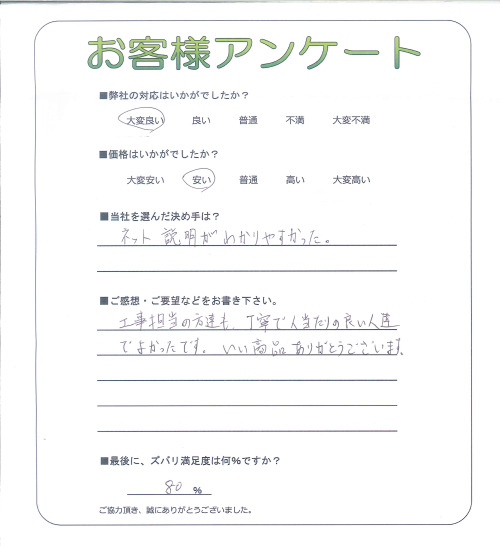 お客様アンケート
■弊社の対応はいかがでしたか？
大変良い 良い 普通 不満 大変不満
■価格はいかがでしたか？
大変安い 安い 普通 高い 大変高い
■当社を選んだ決め手は？
ネット 説明がわかりやすかった。
■ご感想・ご要望などをお書き下さい。
工事担当の方達も、丁寧で人当たりの良い人達
でよかったです。いい商品ありがとうございます。
■最後に、ズバリ満足度は何%ですか？
80 %
ご協力頂き、誠にありがとうございました。